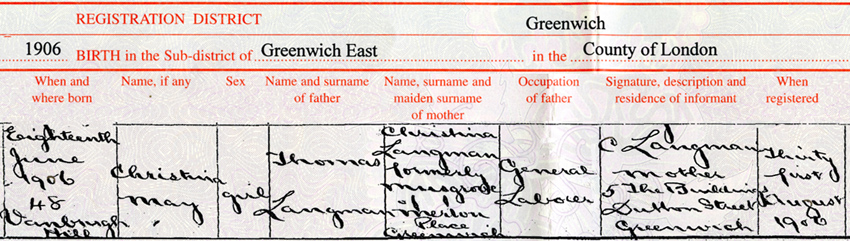 REGISTRATION DISTRICT
Greenwich
1906 BIRTH in the Sub-district of Greenwich East in the County of London
When and where born
Name, if any
Sex
Name and surname of father
Name, surname and maiden surname of mother
Occupation of father
Signature, description and residence of informant
When registered
Eighteenth
June
1906
48
Vanbrugh
Hill
Christina
May
girl
Thomas
Langman
Christina
Langman
formerly
Musgrove
of
Merton
Place
Greenwich
General
Labourer
C Langman
Mother
5 The Buildings
Dutton Street
Greenwich
Thirty
first
August
1906